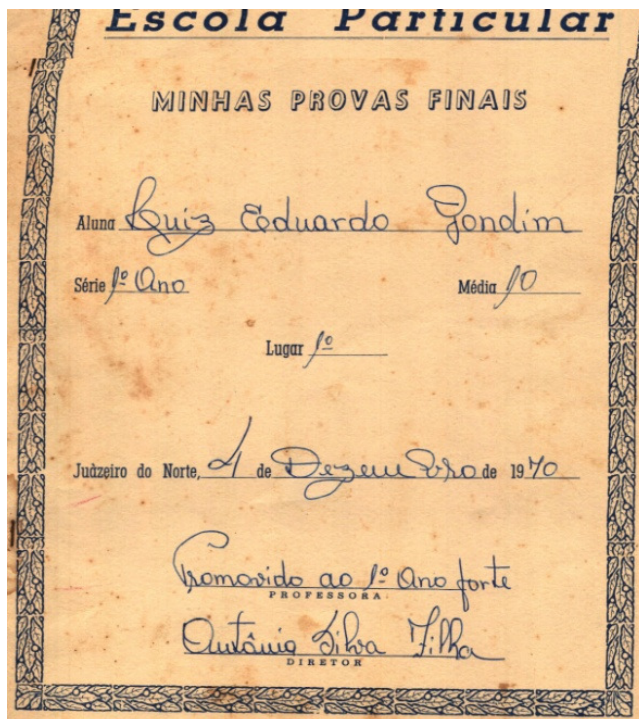 Escola Particular
MINHAS PROVAS FINAIS
Aluna Luiz Eduardo Gondim
Série 1º Ano Média 10
Lugar 1º
Juàzeiro do Norte, 4 de Dezembro de 1970
Promovido ao 1º Ano forte
PROFESSORA
Antônia Silva Filha
DIRETOR